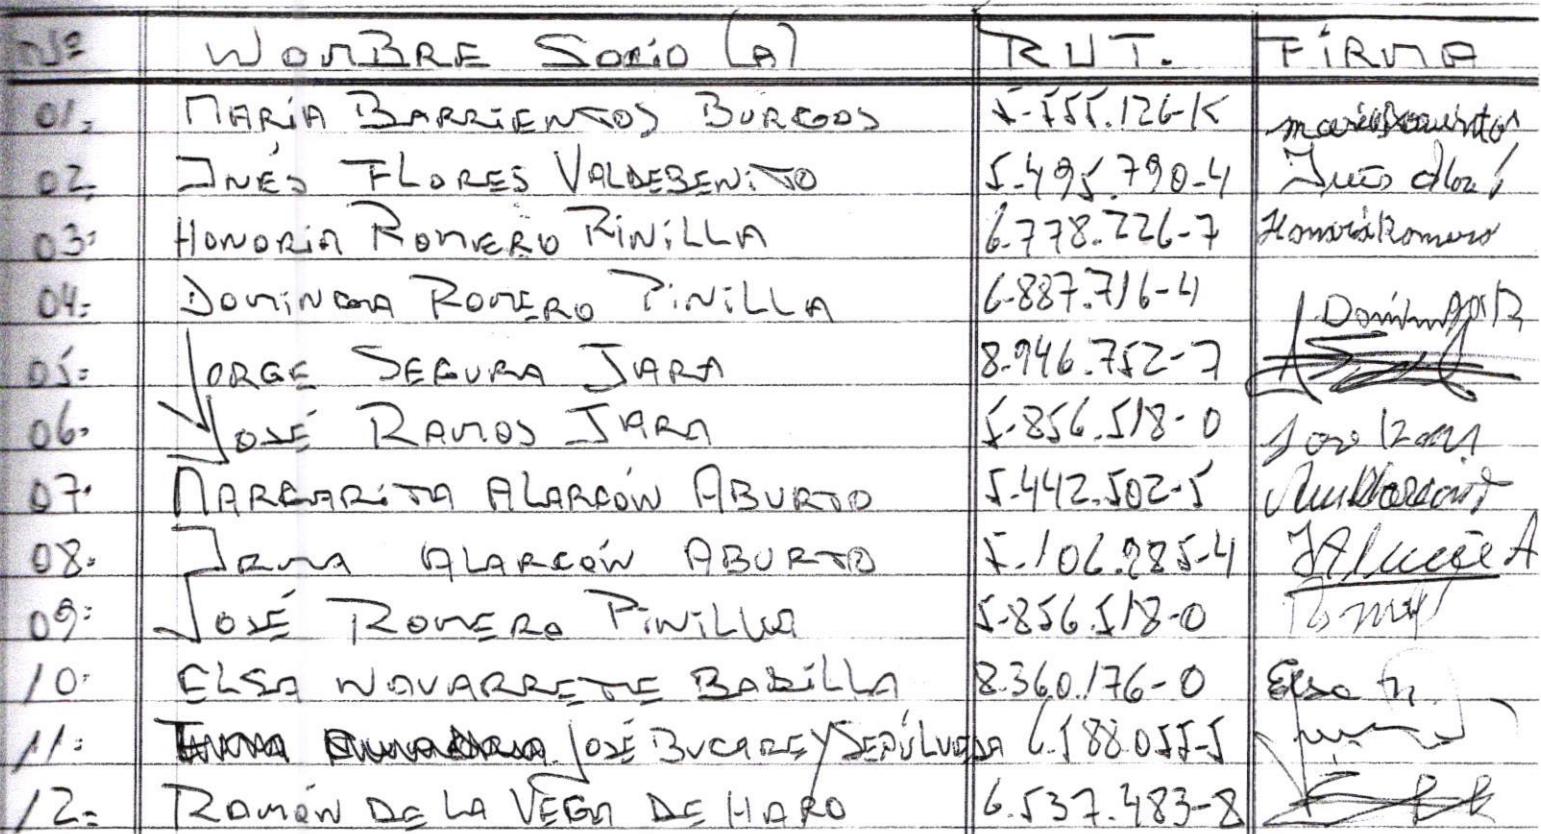 Nº NOMBRE SOCIO (A) RUT. FIRMA
01. MARÍA BARRIENTOS BURGOS 5.755.126-K María Barrientos
02. INÉS FLORES VALDEBENITO 5.495.790-4 Inés
03. HONORIA ROMERO PINILLA 6.778.226-7 Honoria Romero
04. DOMINGA ROMERO PINILLA 6.887.716-4 Dominga R
05. JORGE SEGURA JARA 8.946.752-7
06. JOSÉ RAMOS JARA 5.856.518-0 Jose
07. MARGARITA ALARCÓN ABURTO 5.442.502-5
08. IRMA ALARCÓN ABURTO 5.106.985-4
09. JOSÉ ROMERO PINILLA 5.856.518-0
10. ELSA NAVARRETE BADILLA 8.360.176-0 Elsa N.
11. JOSÉ BUCAREY SEPÚLVEDA 6.588.055-5
12. RAMÓN DE LA VEGA DE HARO 6.537.483-8